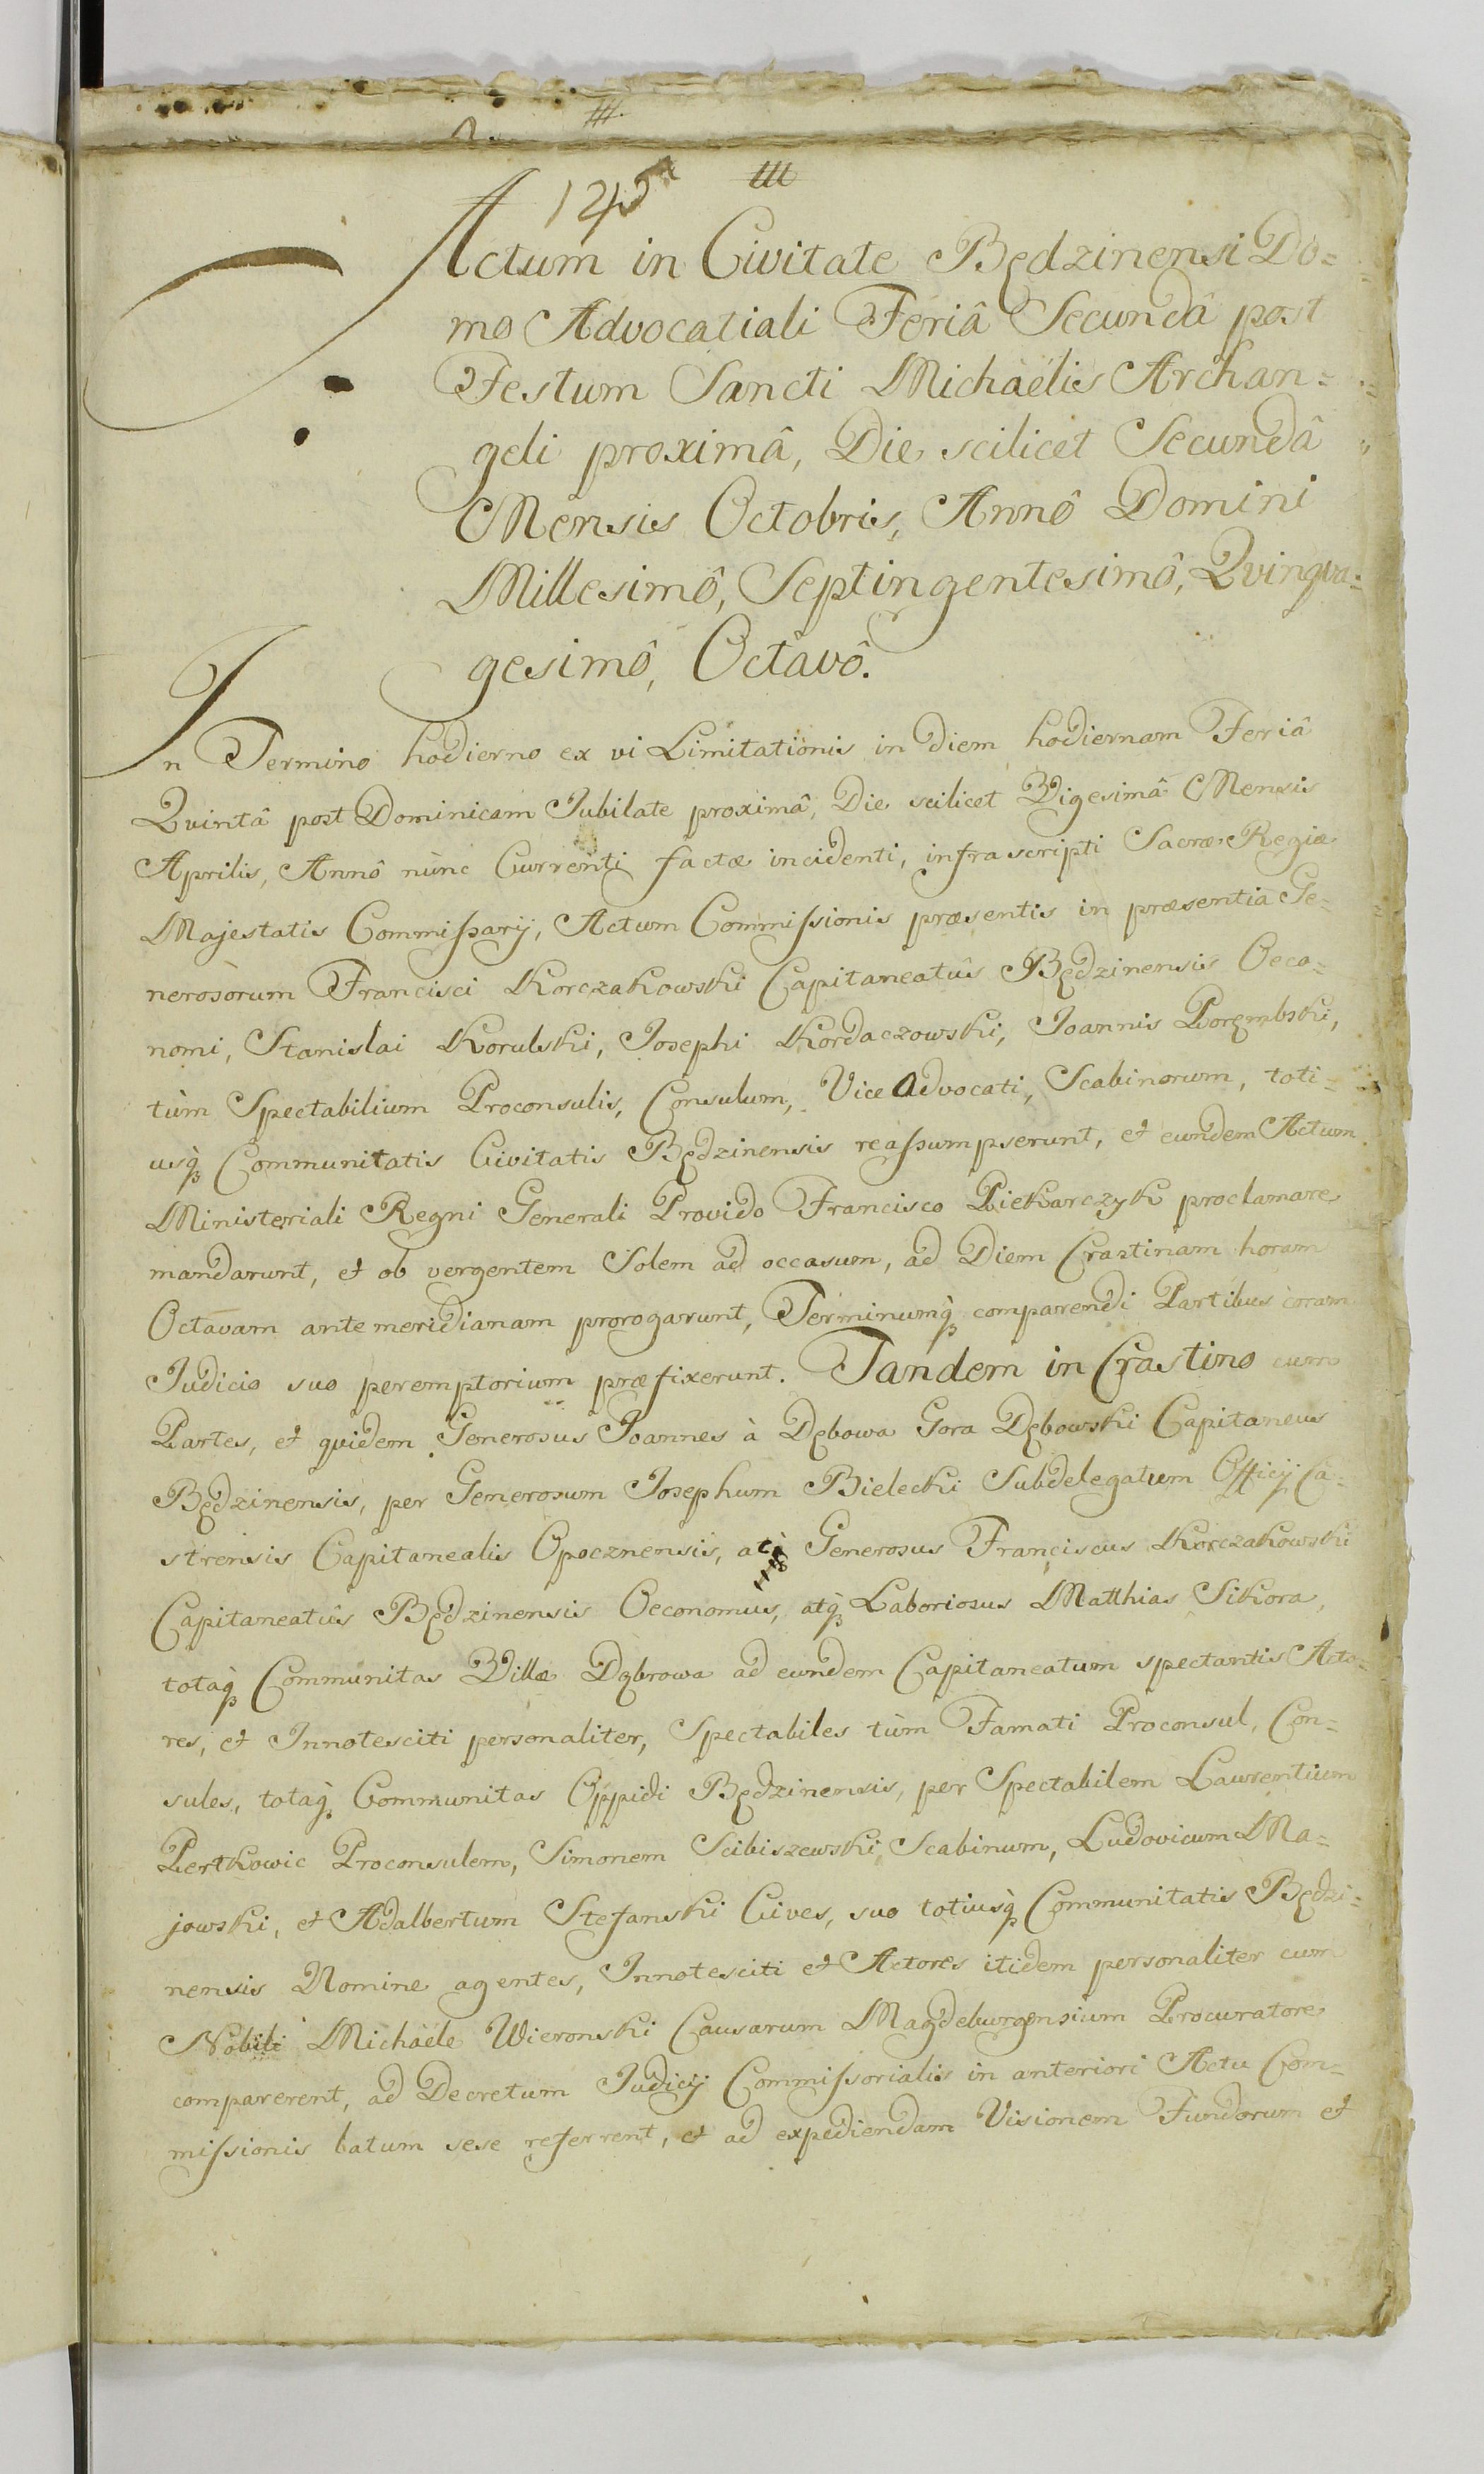 125
Actum in Civitate Będzinensi Do=
mo Advocatiali Feriâ Secundâ post
Festum Sancti Michaëlis Archan=
geli proximâ, Die scilicet Secundâ
Mensis Octobris, Annô Domini
Millesimô, Septingentesimô, Qvinqva=
gesimô, Octavô.
In Termino hodierno ex vi Limitationis in diem hodiernam Feriâ
Qvintâ post Dominicam Jubilate proximâ, Die scilicet Vigesimâ Mensis
Aprilis, Annô nùnc Currenti factæ incidenti, infrascripti Sacræ Regiæ
Majestatis Commißarij, Actum Commißionis præsentis in præsentia Ge=
nerosòrum Francisci Korczakowski Capitaneatûs Będzinensis Oeco=
nomi, Stanislai Korulski, Josephi Kordaczowski, Joannis Porembski,
tùm Spectabilium Proconsulis, Consulum, Vice Advocati, Scabinorum, toti=
usq̀ Communitatis Civitatis Będzinensis reaßumpserunt, et eundem Actum
Ministeriali Regni Generali Provido Francisco Piekarczyk proclamare
mandarunt, et ob vergentem Solem ad occasum, ad Diem Crastinam horam
Octavam ante meridianam prorogarunt, Terminumq̀ comparendi Partibus coram
Judicio suo peremptorium præfixerunt. Tandem in Crastino cum
Partes, et qvidem Generosus Joannes à Dębowa Gora Dębowski Capitaneus
Będzinensis, per Generosum Josephum Bielecki Subdelegatum Officij Ca=
strensis Capitanealis Opocznensis, Generosus Franciscus Korczakowski
Capitaneatûs Będzinensis Oeconomus, atq̀ Laboriosus Matthias Sikora,
totaq̀ Communitas Villæ Dąbrowa ad eundem Capitaneatum spectantis Acto=
res, et Innotesciti personaliter, Spectabiles tùm Famati Proconsul, Con=
sules, totaq̀ Communitas Oppidi Będzinensis, per Spectabilem Laurentium
Pertkowic Proconsulem, Simonem Scibiszewski Scabinum, Ludovicum Ma=
jowski, et Adalbertum Stefanski Cives, suo totiusq̀ Communitatis Będzi=
nensis Nomine agentes, Innotesciti et Actores itidem personaliter cum
Nobili Michaële Wieronski Causarum Magdeburgensium Procuratore
comparerent, ad Decretum Judicij Commißorialis in anteriori Actu Com=
mißionis latum sese referrent, et ad expediendam Visionem Fundorum et